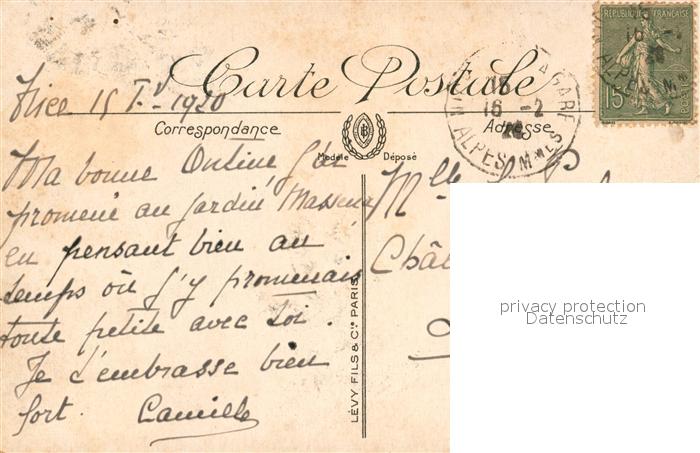 Carte Postale
RÉPUBLIQUE FRANÇAISE
15
POSTES
Nice 15 1920
16 -2
ALPES Mmes
GARE
Correspondance
Adresse
Modèle Déposé
Ma bonne J'ai
promené au Jardin
en pensant bien au
temps où j'y promenais
toute petite avec toi.
Je t'embrasse bien
fort. Camille
Mlle
Chât
LÉVY FILS & Cie PARIS
privacy protection
Datenschutz